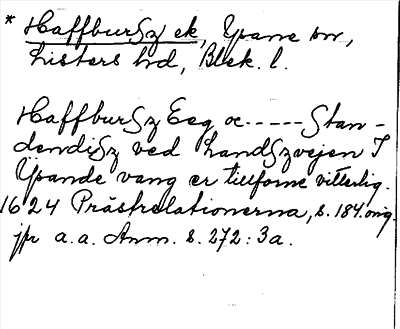 * Haffburgz ek, Ysane sn,
Listers hd, Blek. l.
Haffburgz Eeg oc ----- Stan-
dendisz ved Landszvejen I
Ysande vang er tillforne vitterlig.
1624 Prästrelationerna, s. 184 orig.
jfr a.a. Anm. s. 272: 3a.